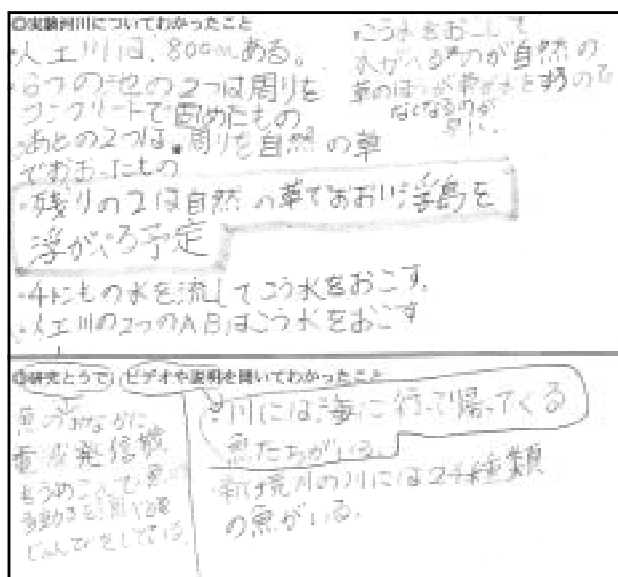 ◎実験河川についてわかったこと
・人工川は、800mある。
・6つの池の2つは周りを
コンクリートで固めたもの
・あとの2つは、周りを自然の草
でおおったもの
・残りの2は自然の草でおおい浮島を
浮かべる予定
・4tもの水を流してこう水をおこす。
・人工川の2つのABはこう水をおこす
・こう水をおこして
水がへるのが自然の
草のほうが草が水をすうので
なくなるのが
早い。
◎研究とうで、ビデオや説明を聞いてわかったこと
魚のおなかに
電波発信機
をうめこんで魚の
行動を調べる
じゅんびをしている。
・川には海に行って帰ってくる
魚たちがいる。
・新境川の川には
種類
の魚がいる。